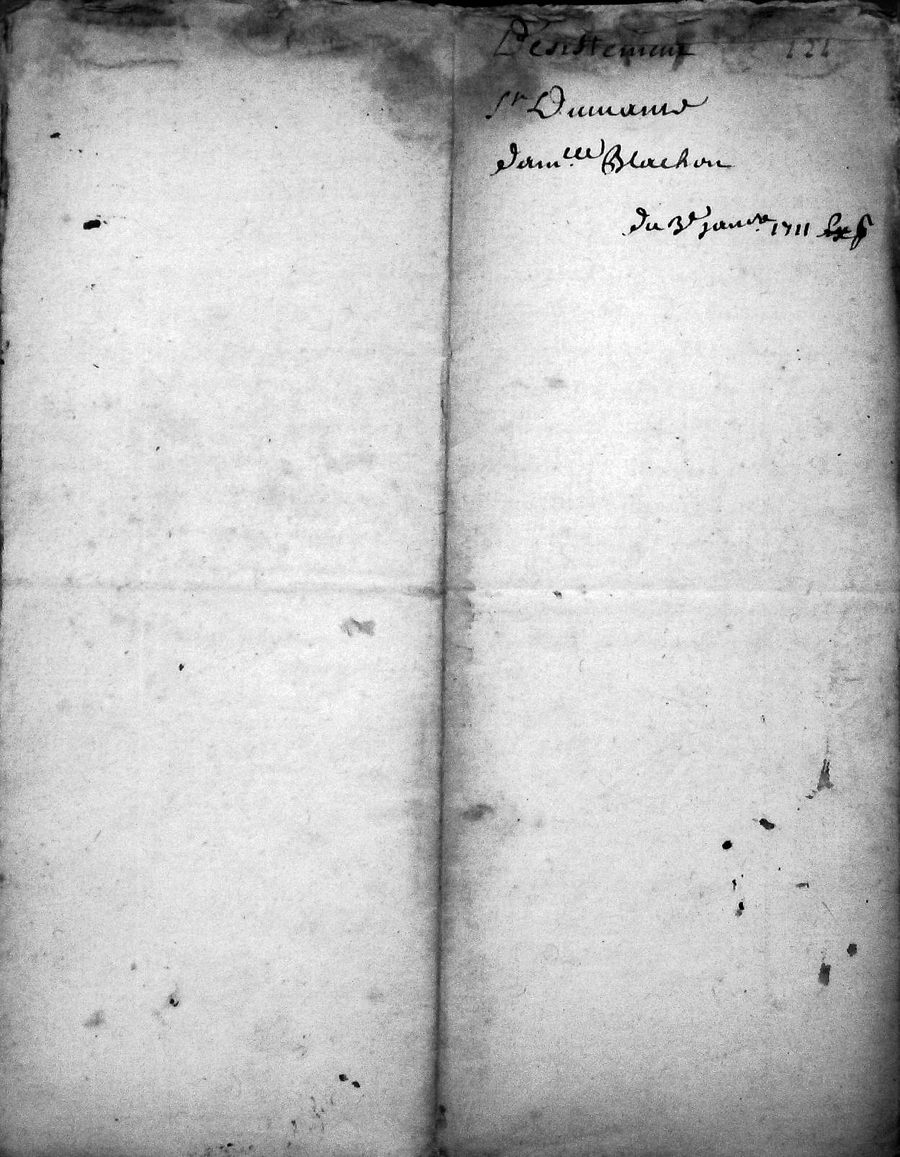 Desistement 121
Sr Dumanie
dam.lle Blachon
du 3e janv.er 1711 Exp